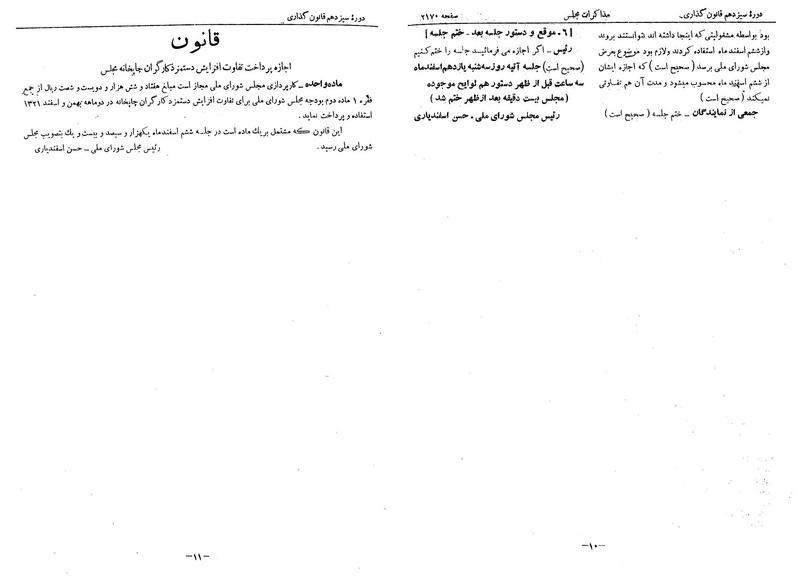 دورهٔ سیزدهم قانون گذاری. مذاکرات مجلس صفحه ۲۱۷۰
بود بواسطه مشغولیتی که اینجا داشته اند نتوانستند بروند
وازششم اسفند ماه استفاده کردند ولازم بود موضوع بعرض
مجلس شورای ملی برسد (صحیح است) که اجازه ایشان
از ششم اسفند ماه محسوب میشود و مدت آن هم تفاوتی
نمیکند (صحیح است)
جمعی از نمایندگان ــ ختم جلسه (صحیح است)
[ ۶ ـ موقع و دستور جلسه بعد ـ ختم جلسه ]
رئیس ـ اگر اجازه می فرمائید جلسه را ختم کنیم
(صحیح است) جلسه آتیه روز سه شنبه یازدهم اسفندماه
سه ساعت قبل از ظهر دستور هم لوایح موجوده
(مجلس بیست دقیقه بعد از ظهر ختم شد)
رئیس مجلس شورای ملی ـ حسن اسفندیاری
ـ۱۰ـ
دورهٔ سیزدهم قانون گذاری
قانون
اجازه پرداخت تفاوت افزایش دستمزد کارگران چاپخانه مجلس
ماده واحده ــ کارپردازی مجلس شورای ملی مجاز است مبلغ هفتاد و شش هزار و دویست و شصت ریال از جمع
فقره ۱ ماده دوم بودجه مجلس شورای ملی برای تفاوت افزایش دستمزد کارگران چاپخانه در دوماهه بهمن و اسفند ۱۳۲۱
استفاده و پرداخت نماید .
این قانون که مشتمل بر یک ماده است در جلسه ششم اسفندماه یکهزار و سیصد و بیست و یک بتصویب مجلس
شورای ملی رسید . رئیس مجلس شورای ملی ــ حسن اسفندیاری
ـ۱۱ـ